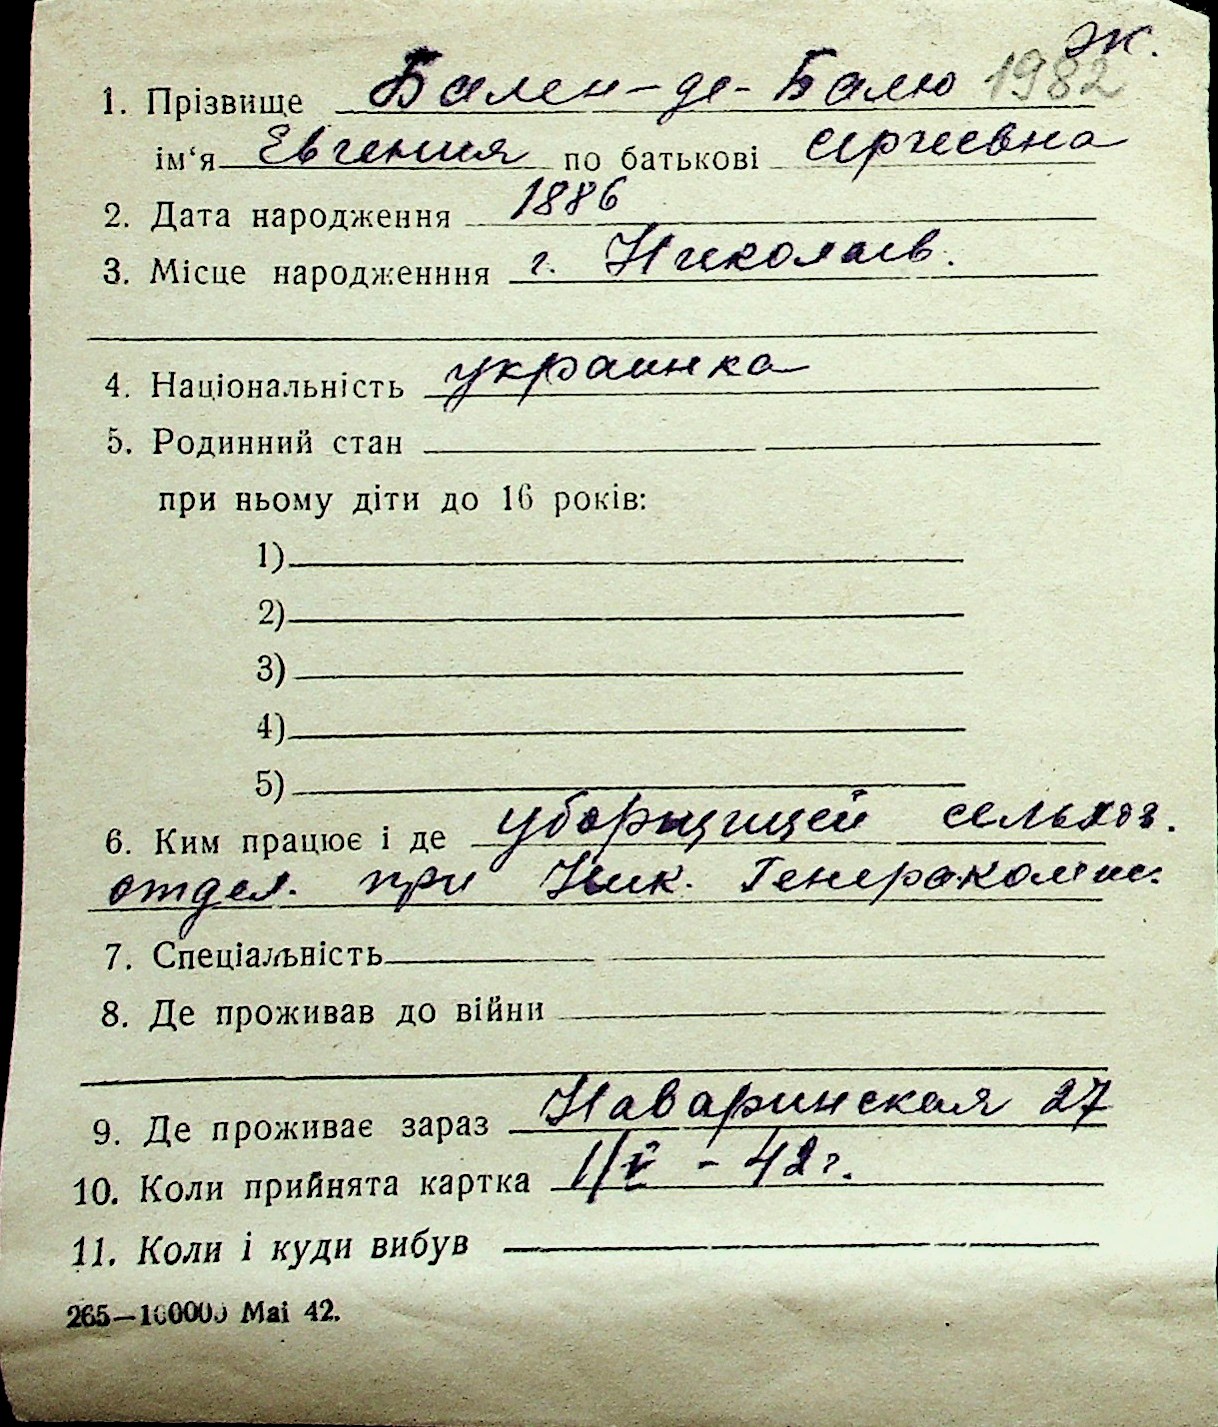 ж.
1. Прізвище Бален-де-Балю 1982
ім'я Евгения по батькові Сергеевна
2. Дата народження 1886
3. Місце народженння г. Николаев.
4. Національність украинка
5. Родинний стан
при ньому діти до 16 років:
1)
2)
3)
4)
5)
6. Ким працює і де уборщицей сельхоз.
отдел. при Ник. Генеракомис.
7. Спеціальність
8. Де проживав до війни
9. Де проживає зараз Наваринская 27
10. Коли прийнята картка 1/V - 42 г.
11. Коли і куди вибув
265—100000 Mai 42.